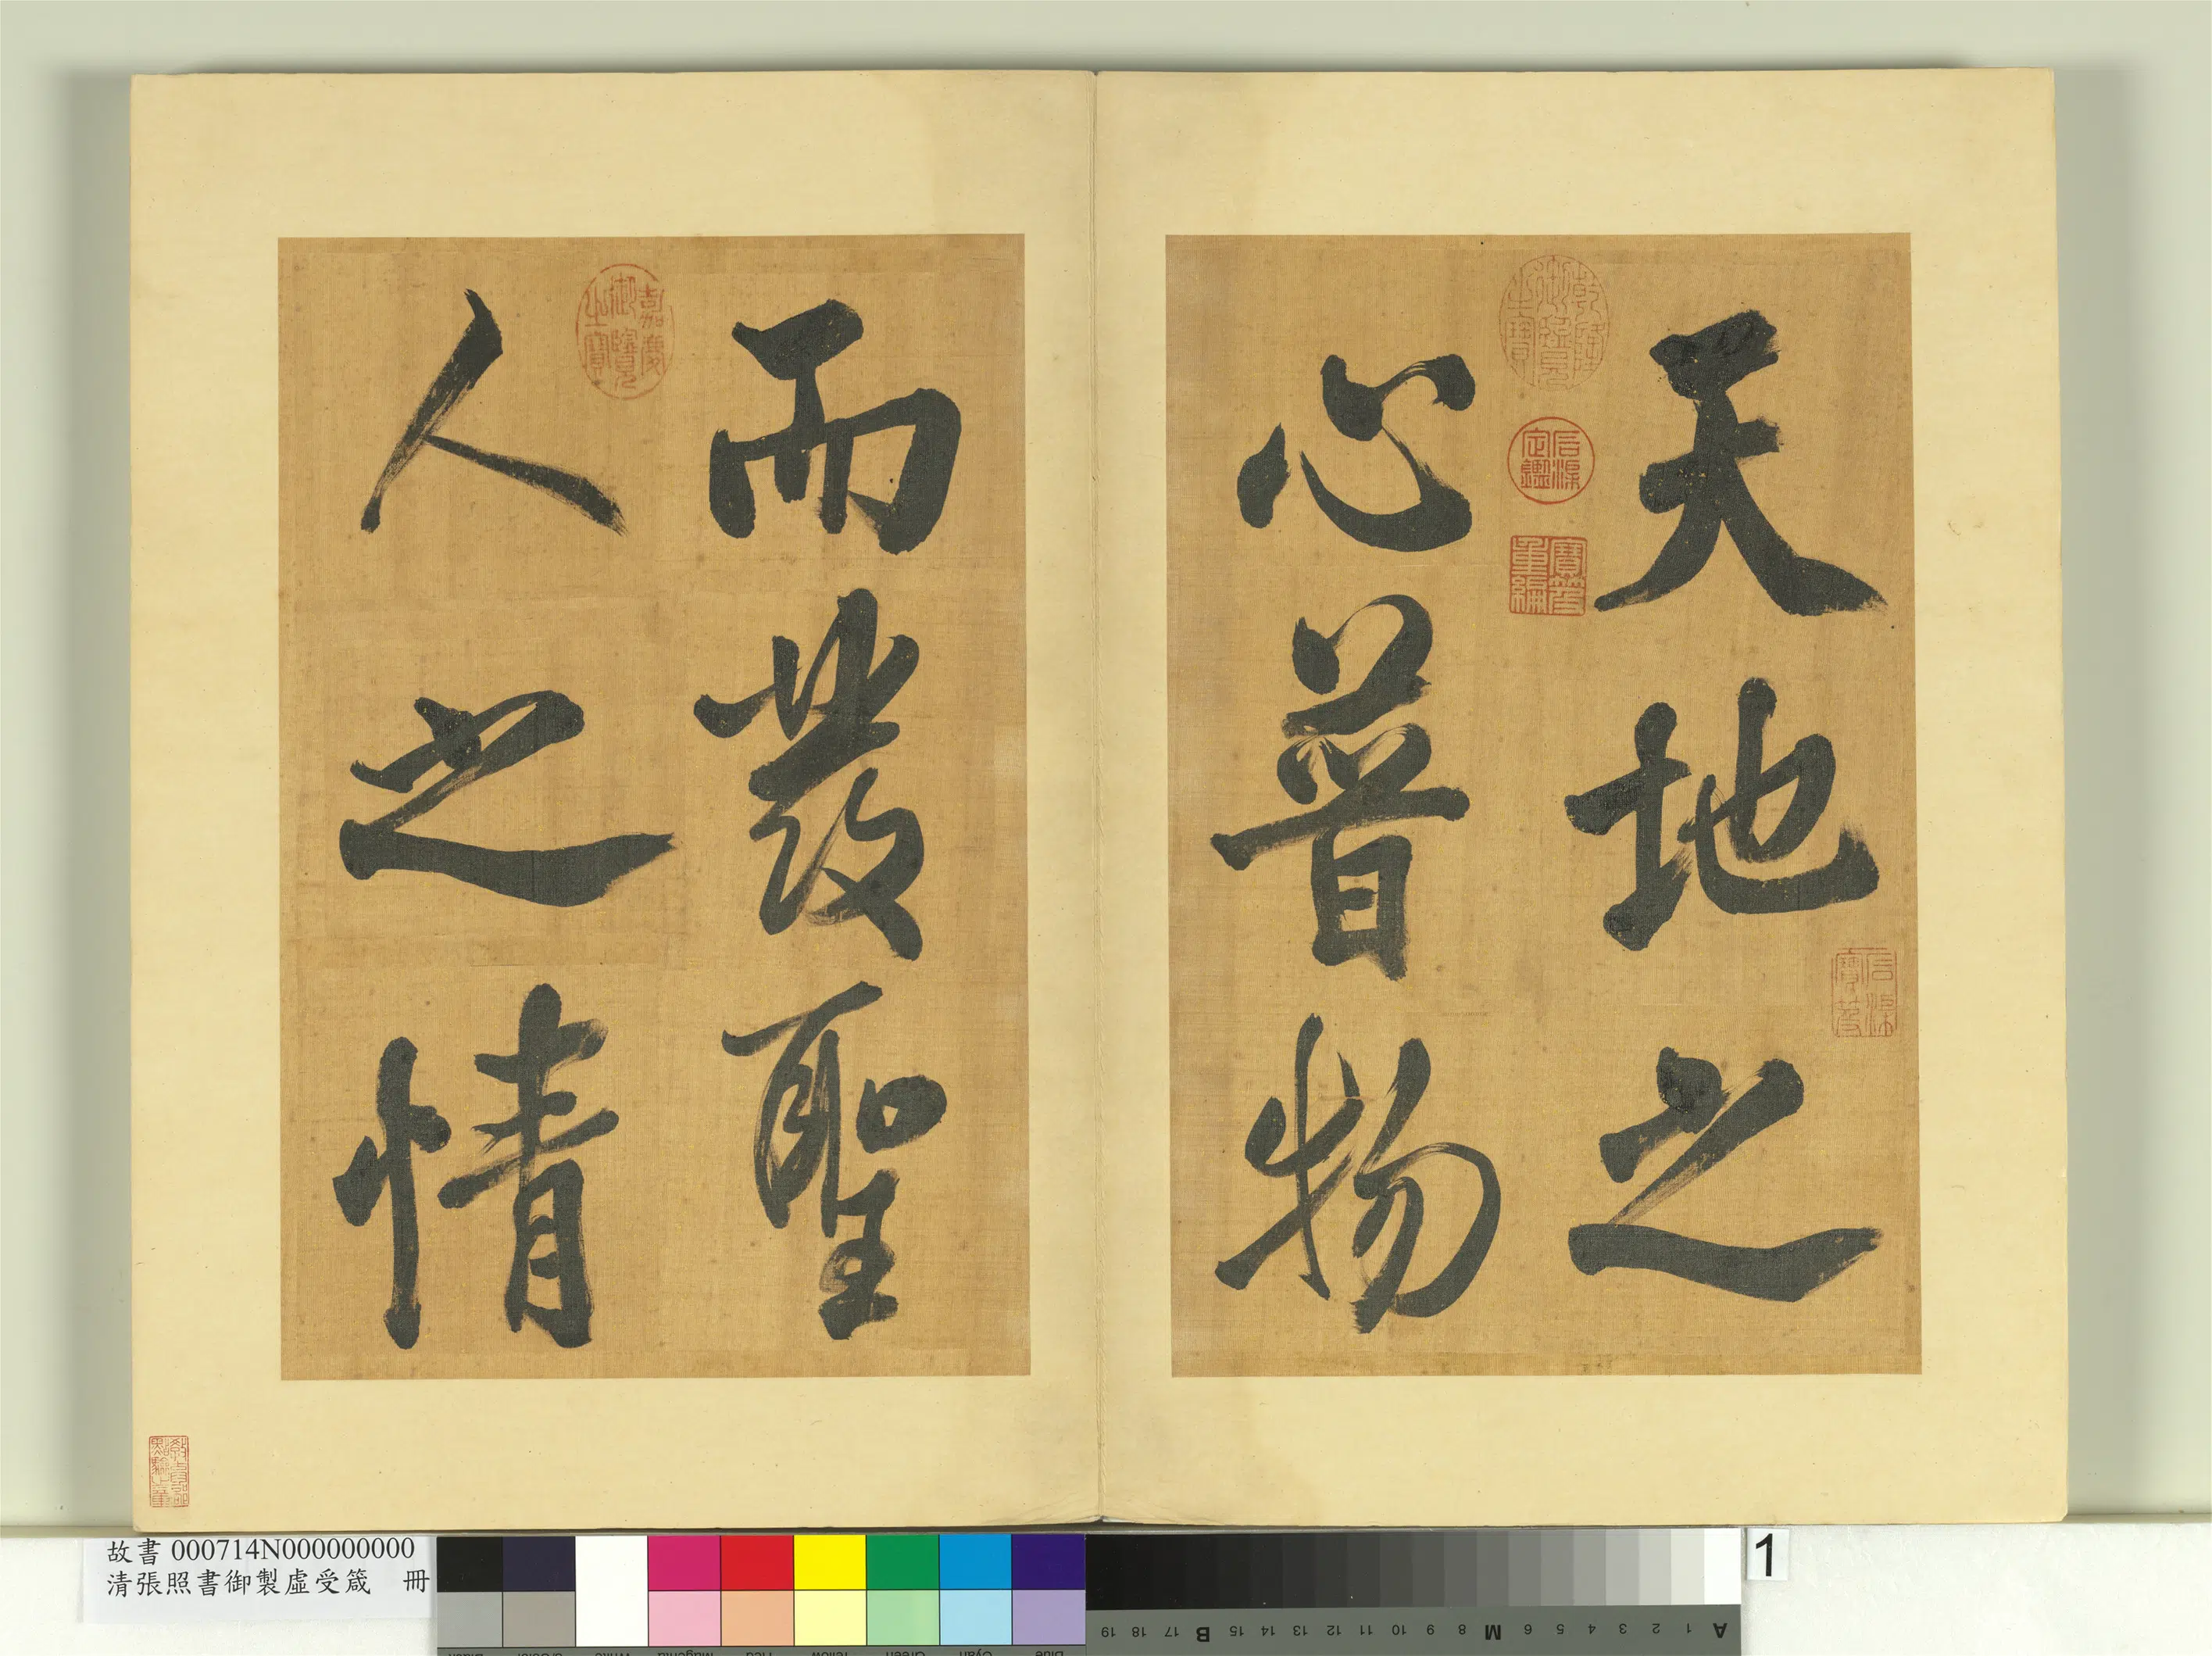 天地之
心普物
而發聖
人之情
乾隆御覽之寶
石渠定鑑
寶笈重編
石渠寶笈
嘉慶御覽之寶
故書 000714N000000000
清張照書御製虛受箴 冊
1
A 1 2 3 4 5 6 M 8 9 10 11 12 13 14 15 B 17 18 19